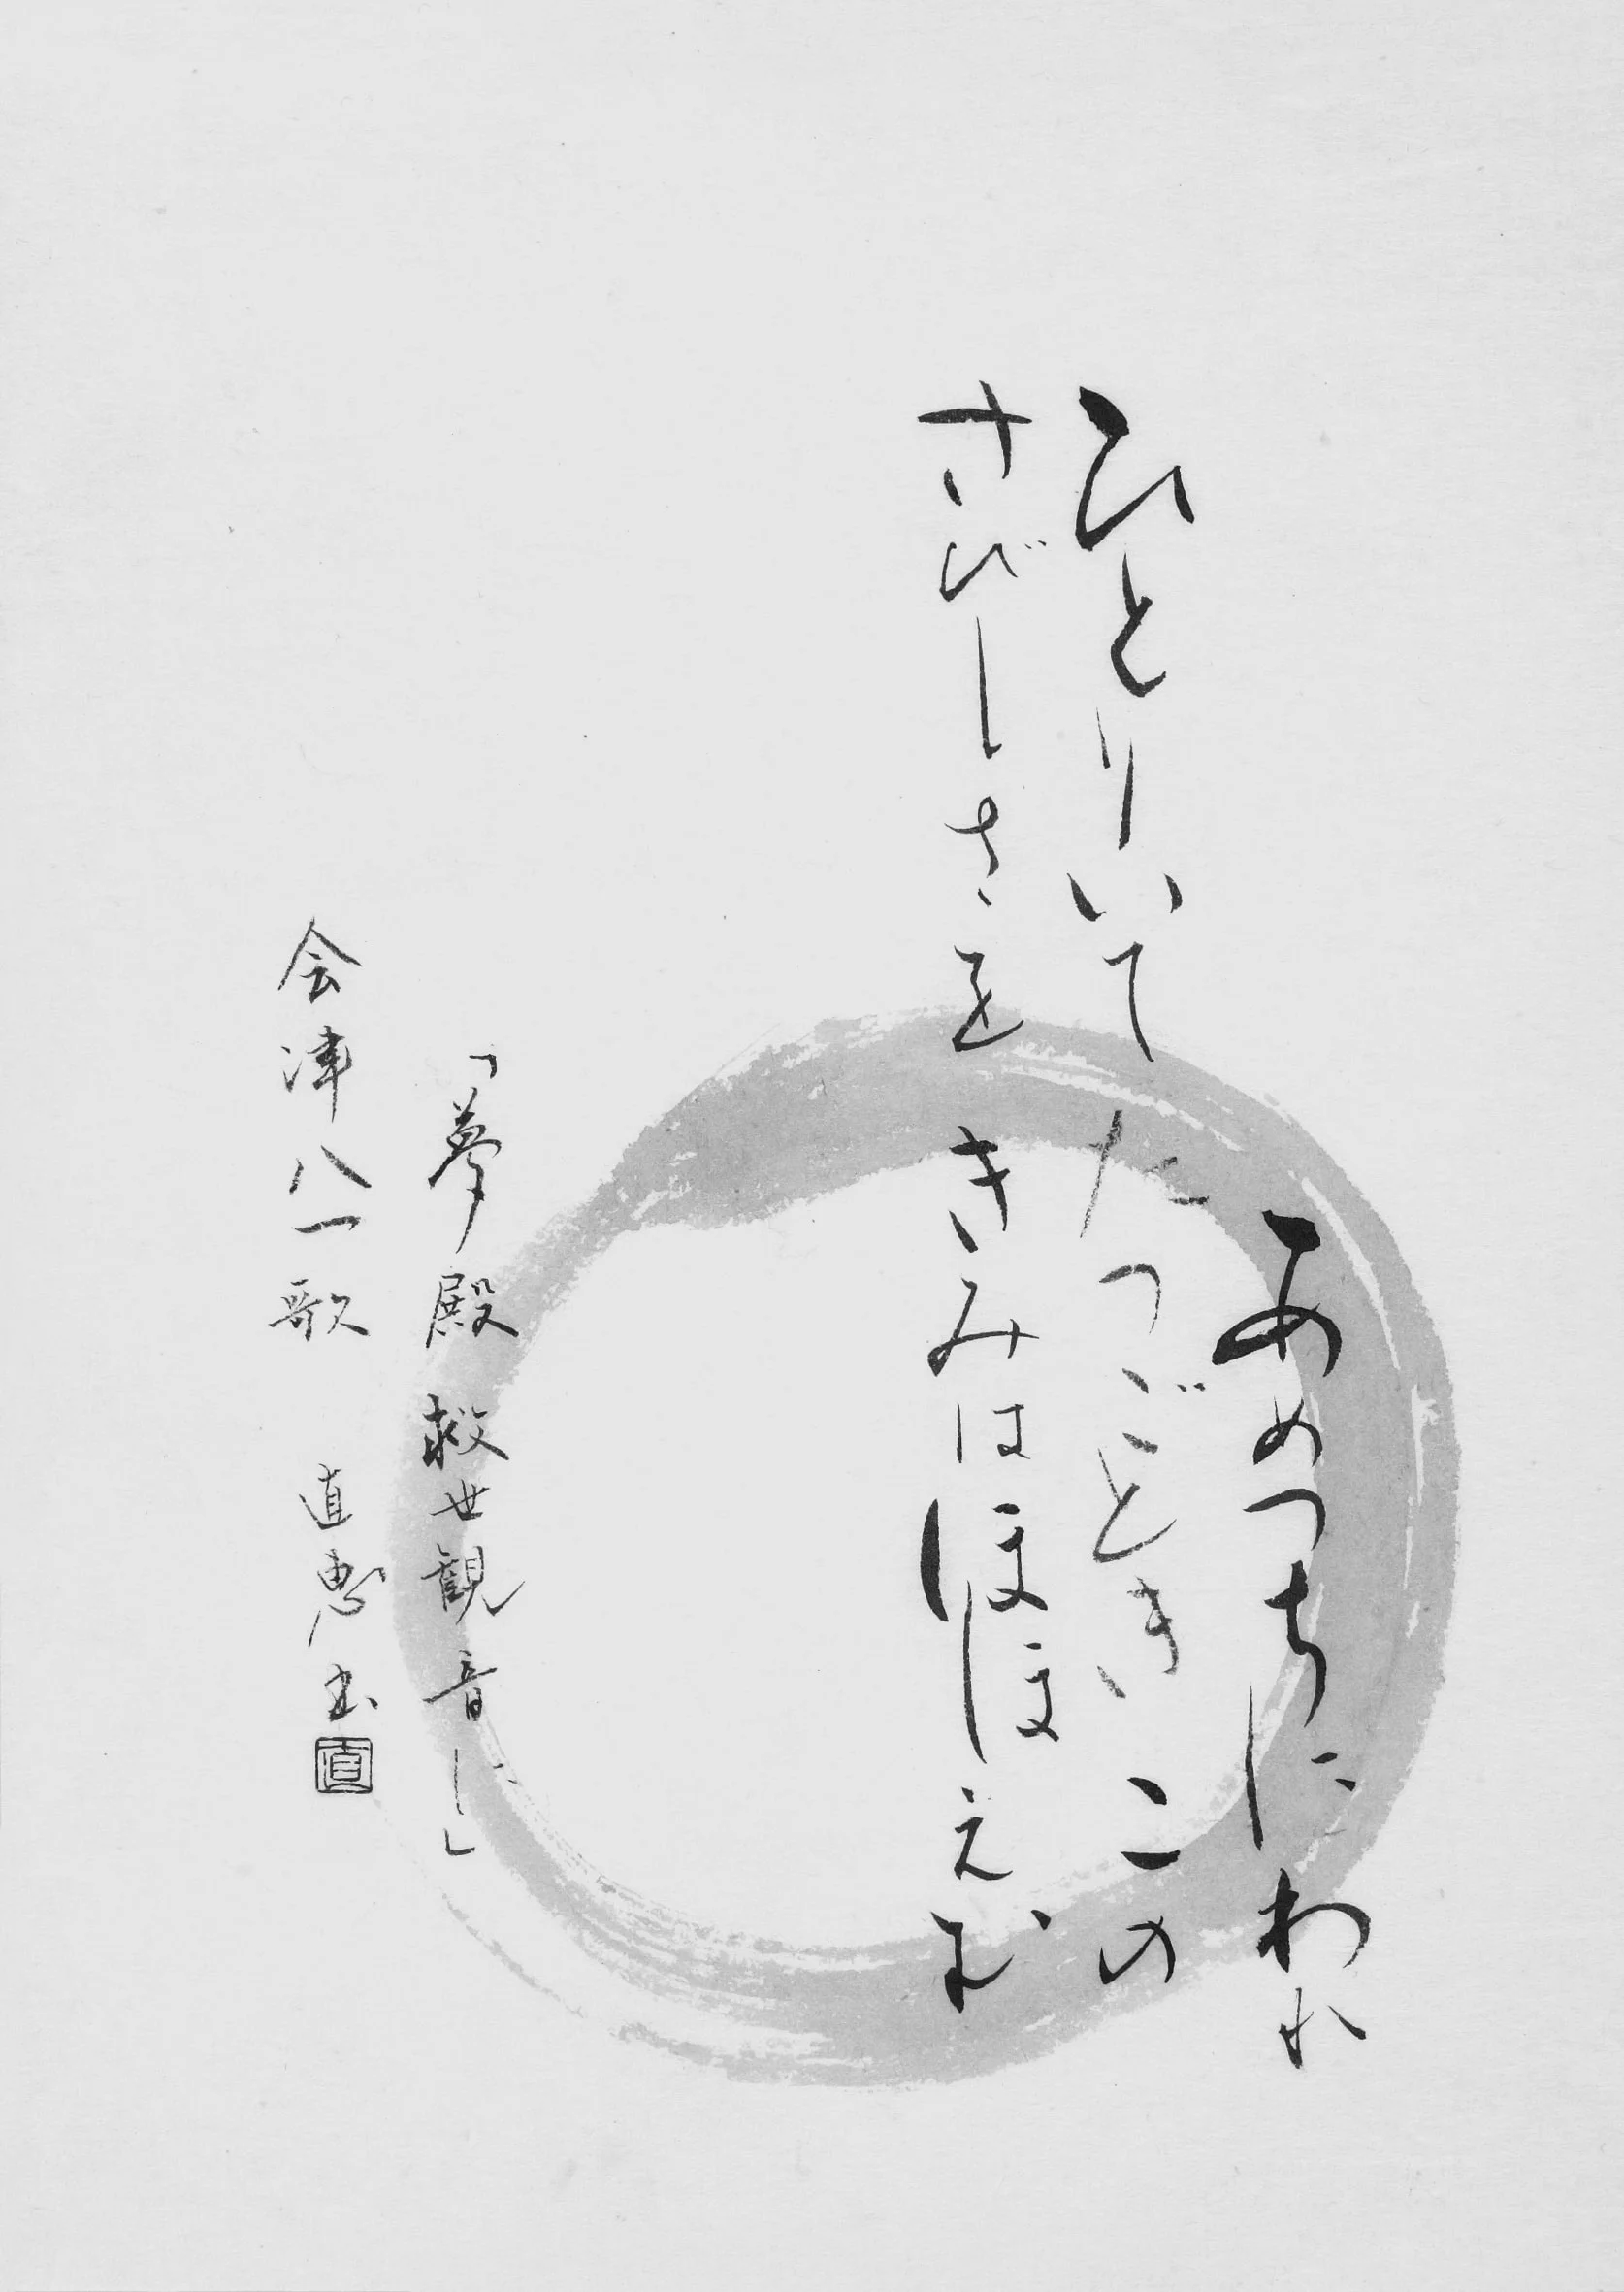 あめつちにわれ
ひとりいてたつごときこの
さびしさをきみはほほえむ
「夢殿救世観音に」
会津八一歌 直恵書
直